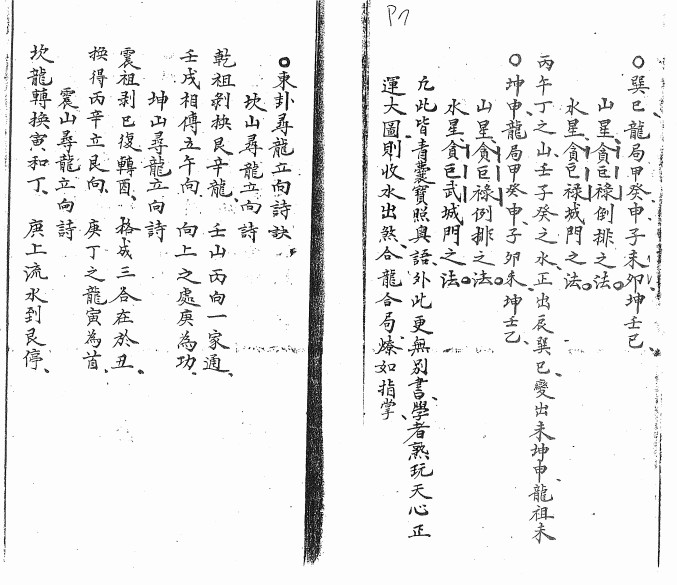 P7
○巽巳龍局甲癸申子未卯坤壬乙
山星貪巨祿倒排之法。
水星貪巨祿城門之法。
丙午丁之山壬子癸之水正出辰巽巳變出未坤申龍祖未
○坤申龍局甲癸申子卯未坤壬乙
山星貪巨祿例排之法。
水星貪巨武城門之法。
凡此皆青囊寶照奧語外此更無別書學者熟玩天心正
運大圖則收水出煞合龍合局燎如指掌
○東卦尋龍立向詩訣
坎山尋龍立向詩
乾祖剝換艮辛龍 壬山丙向一家通
壬戌相傳五午向 向上之處庚為功
坤山尋龍立向詩
震祖剝巳復轉酉 格成三吝在於丑
換得丙辛立艮向 庚丁之龍寅為首
震山尋龍立向詩
坎龍轉換寅和丁 庚上流水到艮停